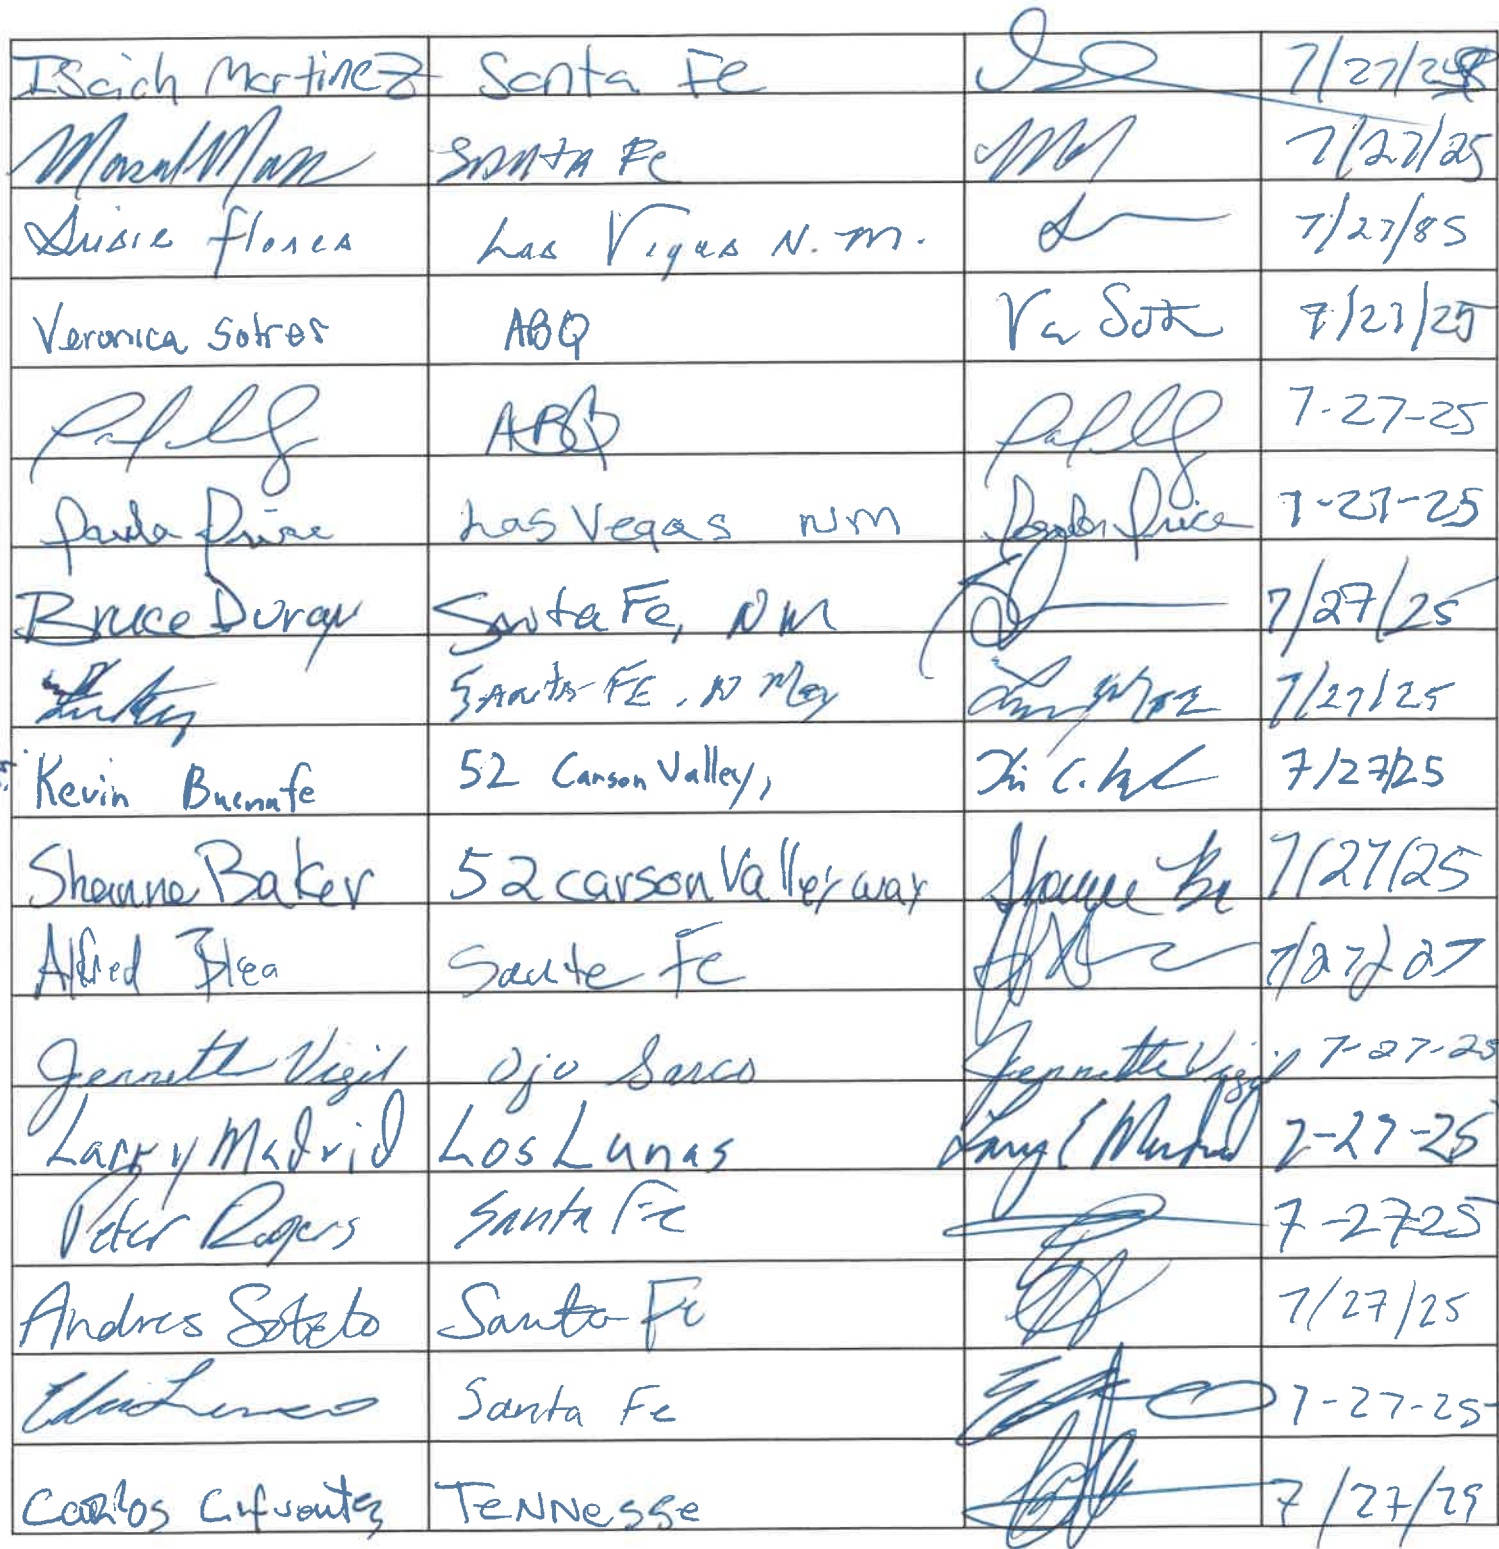 Isaiah Martinez Santa Fe 7/27/25
Santa Fe 7/27/25
Susie Flores Las Vigas N.M. 7/27/85
Veronica Sotres ABQ 7/27/25
ABQ 7-27-25
Paula Price Las Vegas NM Price 7-27-25
Bruce Duran Santa Fe, NM 7/27/25
Santa FE, N Mex 7/27/25
Kevin Buenafe 52 Carson Valley, 7/27/25
Shawna Baker 52 carson Valley way 7/27/25
Alfred Blea Sante Fe 7/27/27
Jennette Vigil Ojo Sarco Jennette Vigil 7-27-25
Larry Madrid Los Lunas Larry E Madrid 7-27-25
Peter Rogers Santa Fe 7-27-25
Andres Sotelo Santa Fe 7/27/25
Santa Fe 7-27-25
Carlos Cifuentes TeNNesse 7/27/25